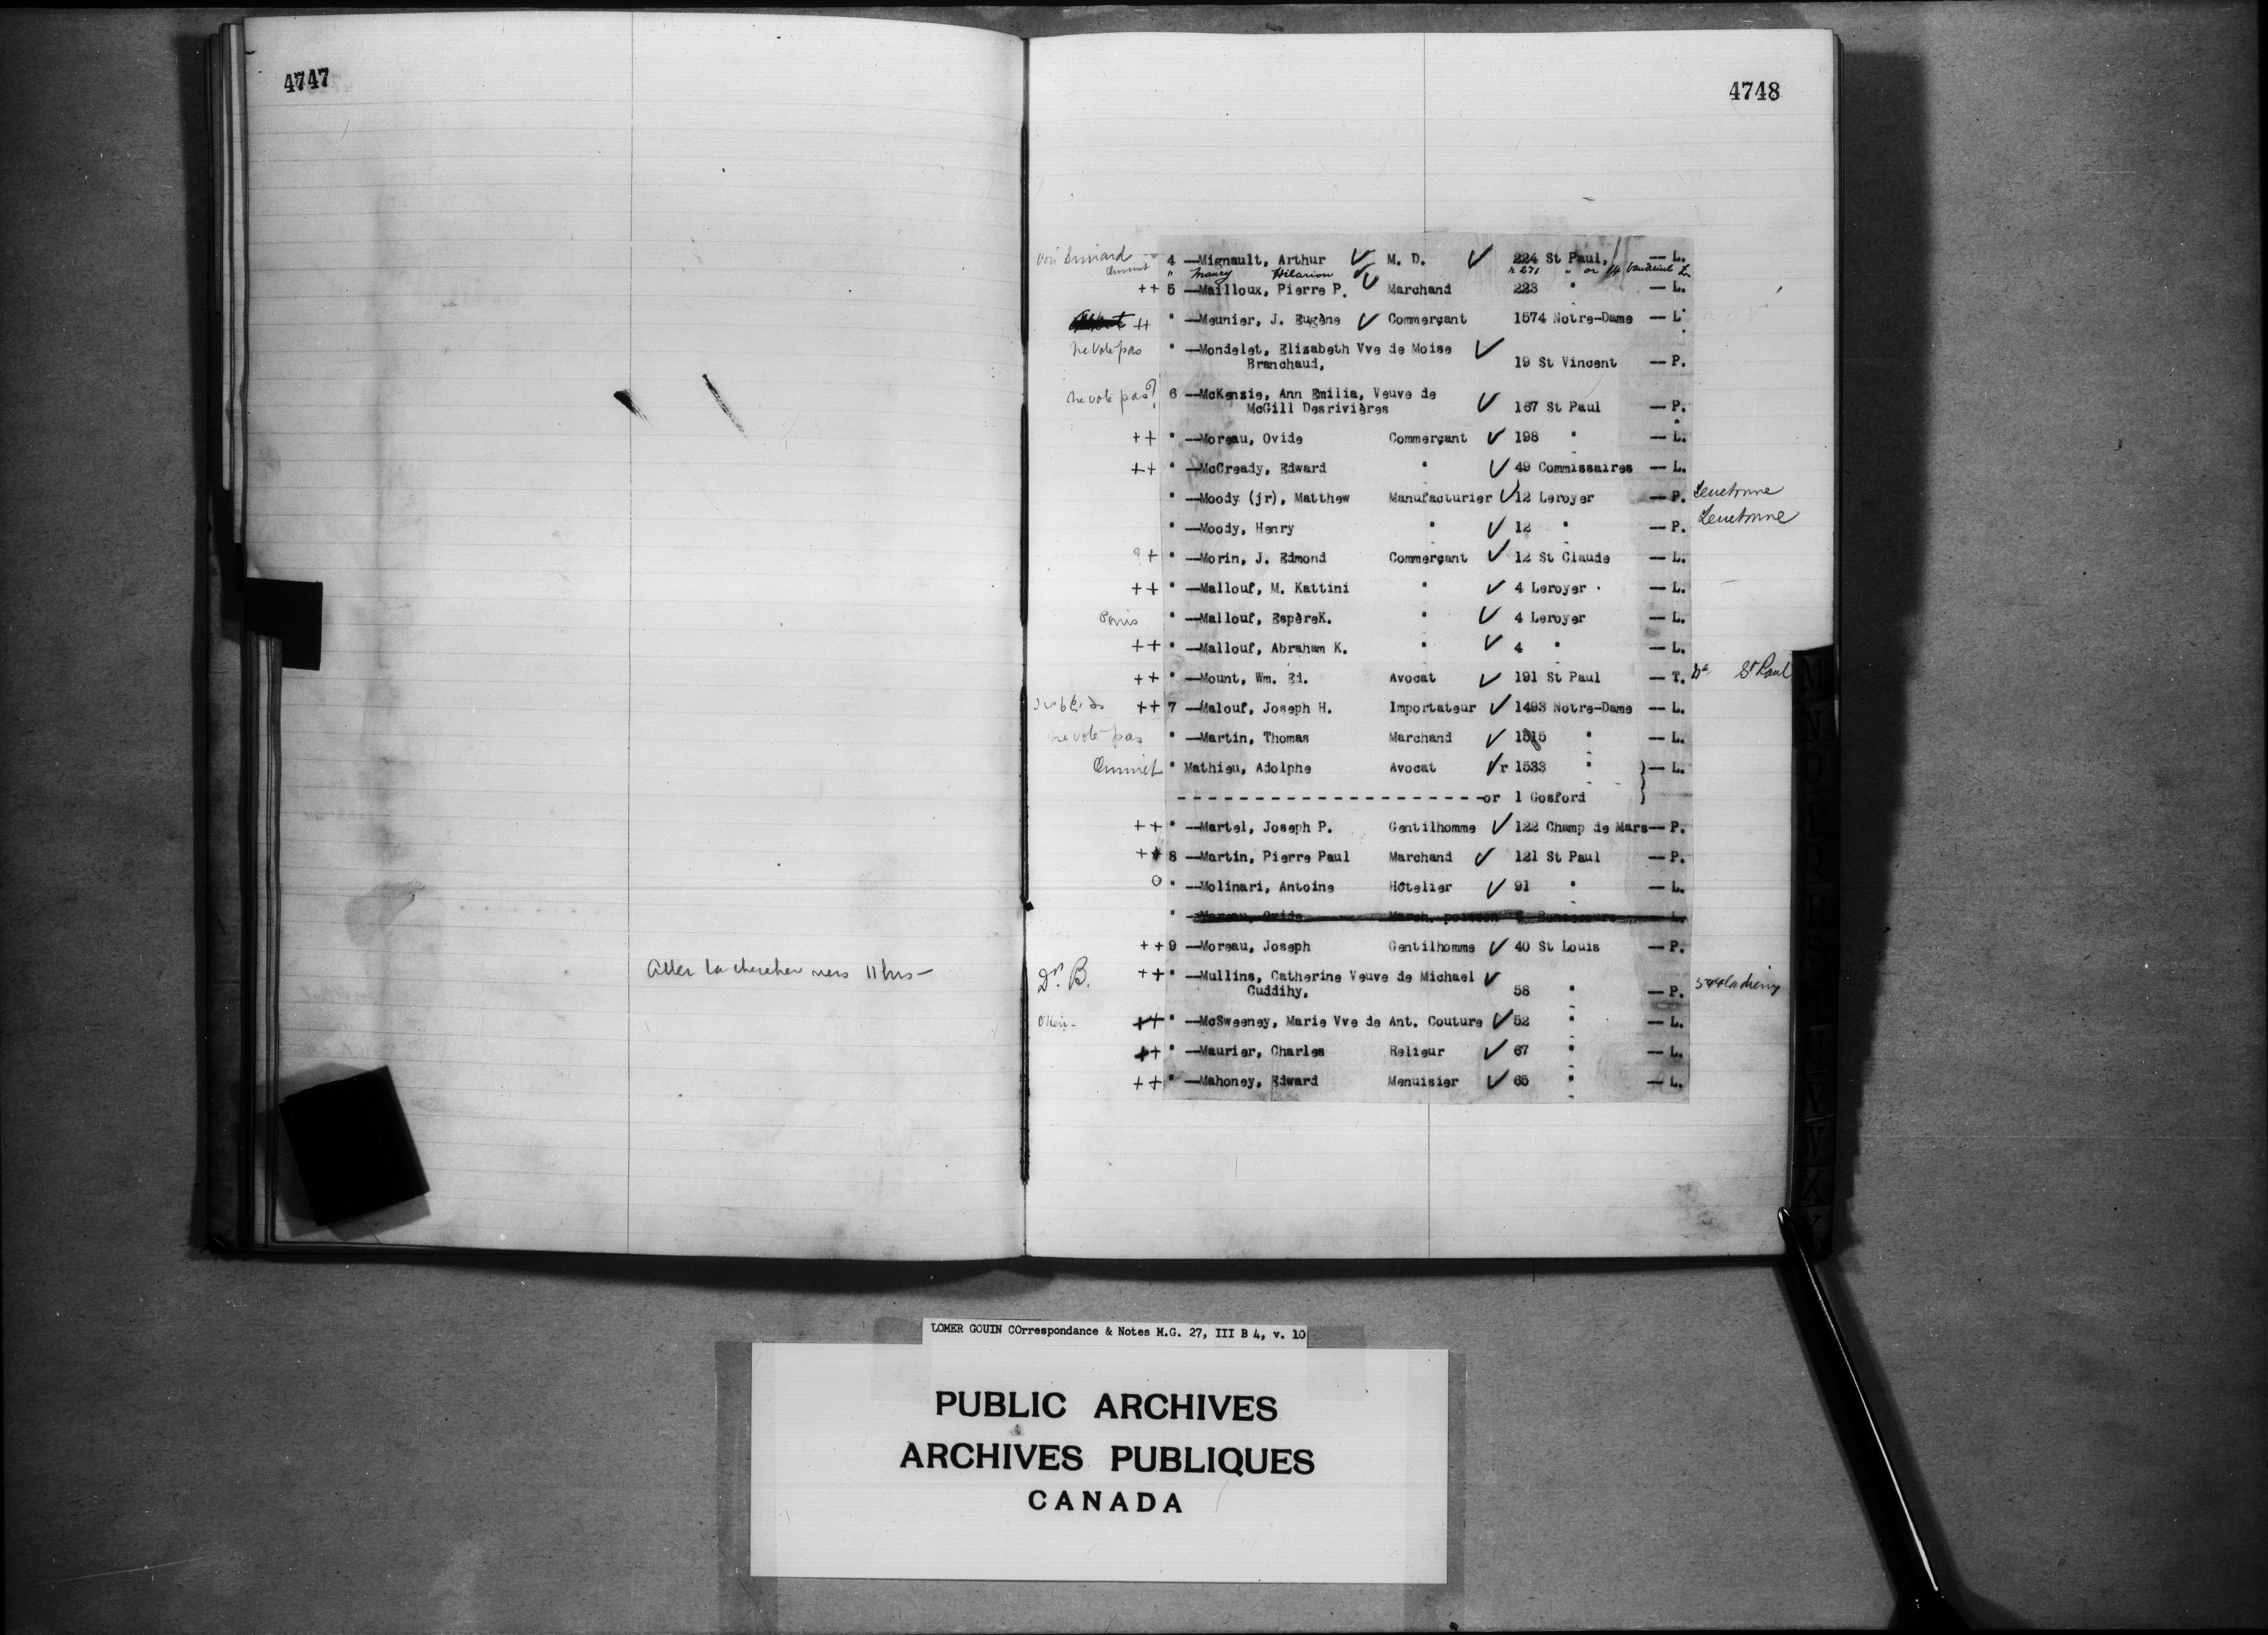 4747
Aller la chercher vers 11 hrs —
4748
4 —Mignault, Arthur ✓ M. D. ✓ 224 St Paul, — L.
" Maury Hilarion ✓ r 271 " or 14
++ 5 —Mailloux, Pierre P. ✓ Marchand 223 " — L.
++ " —Meunier, J. Eugène ✓ Commerçant 1574 Notre-Dame — L.
ne vote pas " —Mondelet, Elizabeth Vve de Moise ✓
Branchaud, 19 St Vincent — P.
ne vote pas? 6 —McKenzie, Ann Emilia, Veuve de
McGill Desrivières ✓ 167 St Paul — P.
++ " —Moreau, Ovide Commerçant ✓ 198 " — L.
++ " —McCready, Edward " ✓ 49 Commissaires — L.
" —Moody (jr), Matthew Manufacturier ✓ 12 Leroyer — P.
" —Moody, Henry " ✓ 12 " — P.
+ " —Morin, J. Edmond Commerçant ✓ 12 St Claude — L.
++ " —Mallouf, M. Kattini " ✓ 4 Leroyer — L.
" —Mallouf, EspèreK. " ✓ 4 Leroyer — L.
++ " —Mallouf, Abraham K. " ✓ 4 " — L.
++ " —Mount, Wm. Ed. Avocat ✓ 191 St Paul — T. St Paul
++ 7 —Malouf, Joseph H. Importateur ✓ 1493 Notre-Dame — L.
ne vote pas " —Martin, Thomas Marchand ✓ 1515 " — L.
" Mathieu, Adolphe Avocat ✓ r 1533 " )— L.
----------------------or 1 Gosford )
++ " —Martel, Joseph P. Gentilhomme ✓ 122 Champ de Mars— P.
++ 8 —Martin, Pierre Paul Marchand ✓ 121 St Paul — P.
O " —Molinari, Antoine Hôtelier ✓ 91 " — L.
" —Moreau, Ovide March. poisson — L.
++ 9 —Moreau, Joseph Gentilhomme ✓ 40 St Louis — P.
Dr. B. ++ " —Mullins, Catherine Veuve de Michael ✓
Cuddihy, 58 " — P.
++ " —McSweeney, Marie Vve de Ant. Couture ✓ 52 " — L.
++ " —Maurier, Charles Relieur ✓ 67 " — L.
++ " —Mahoney, Edward Menuisier ✓ 65 " — L.
LOMER GOUIN COrrespondance & Notes M.G. 27, III B 4, v. 10
PUBLIC ARCHIVES
ARCHIVES PUBLIQUES
CANADA